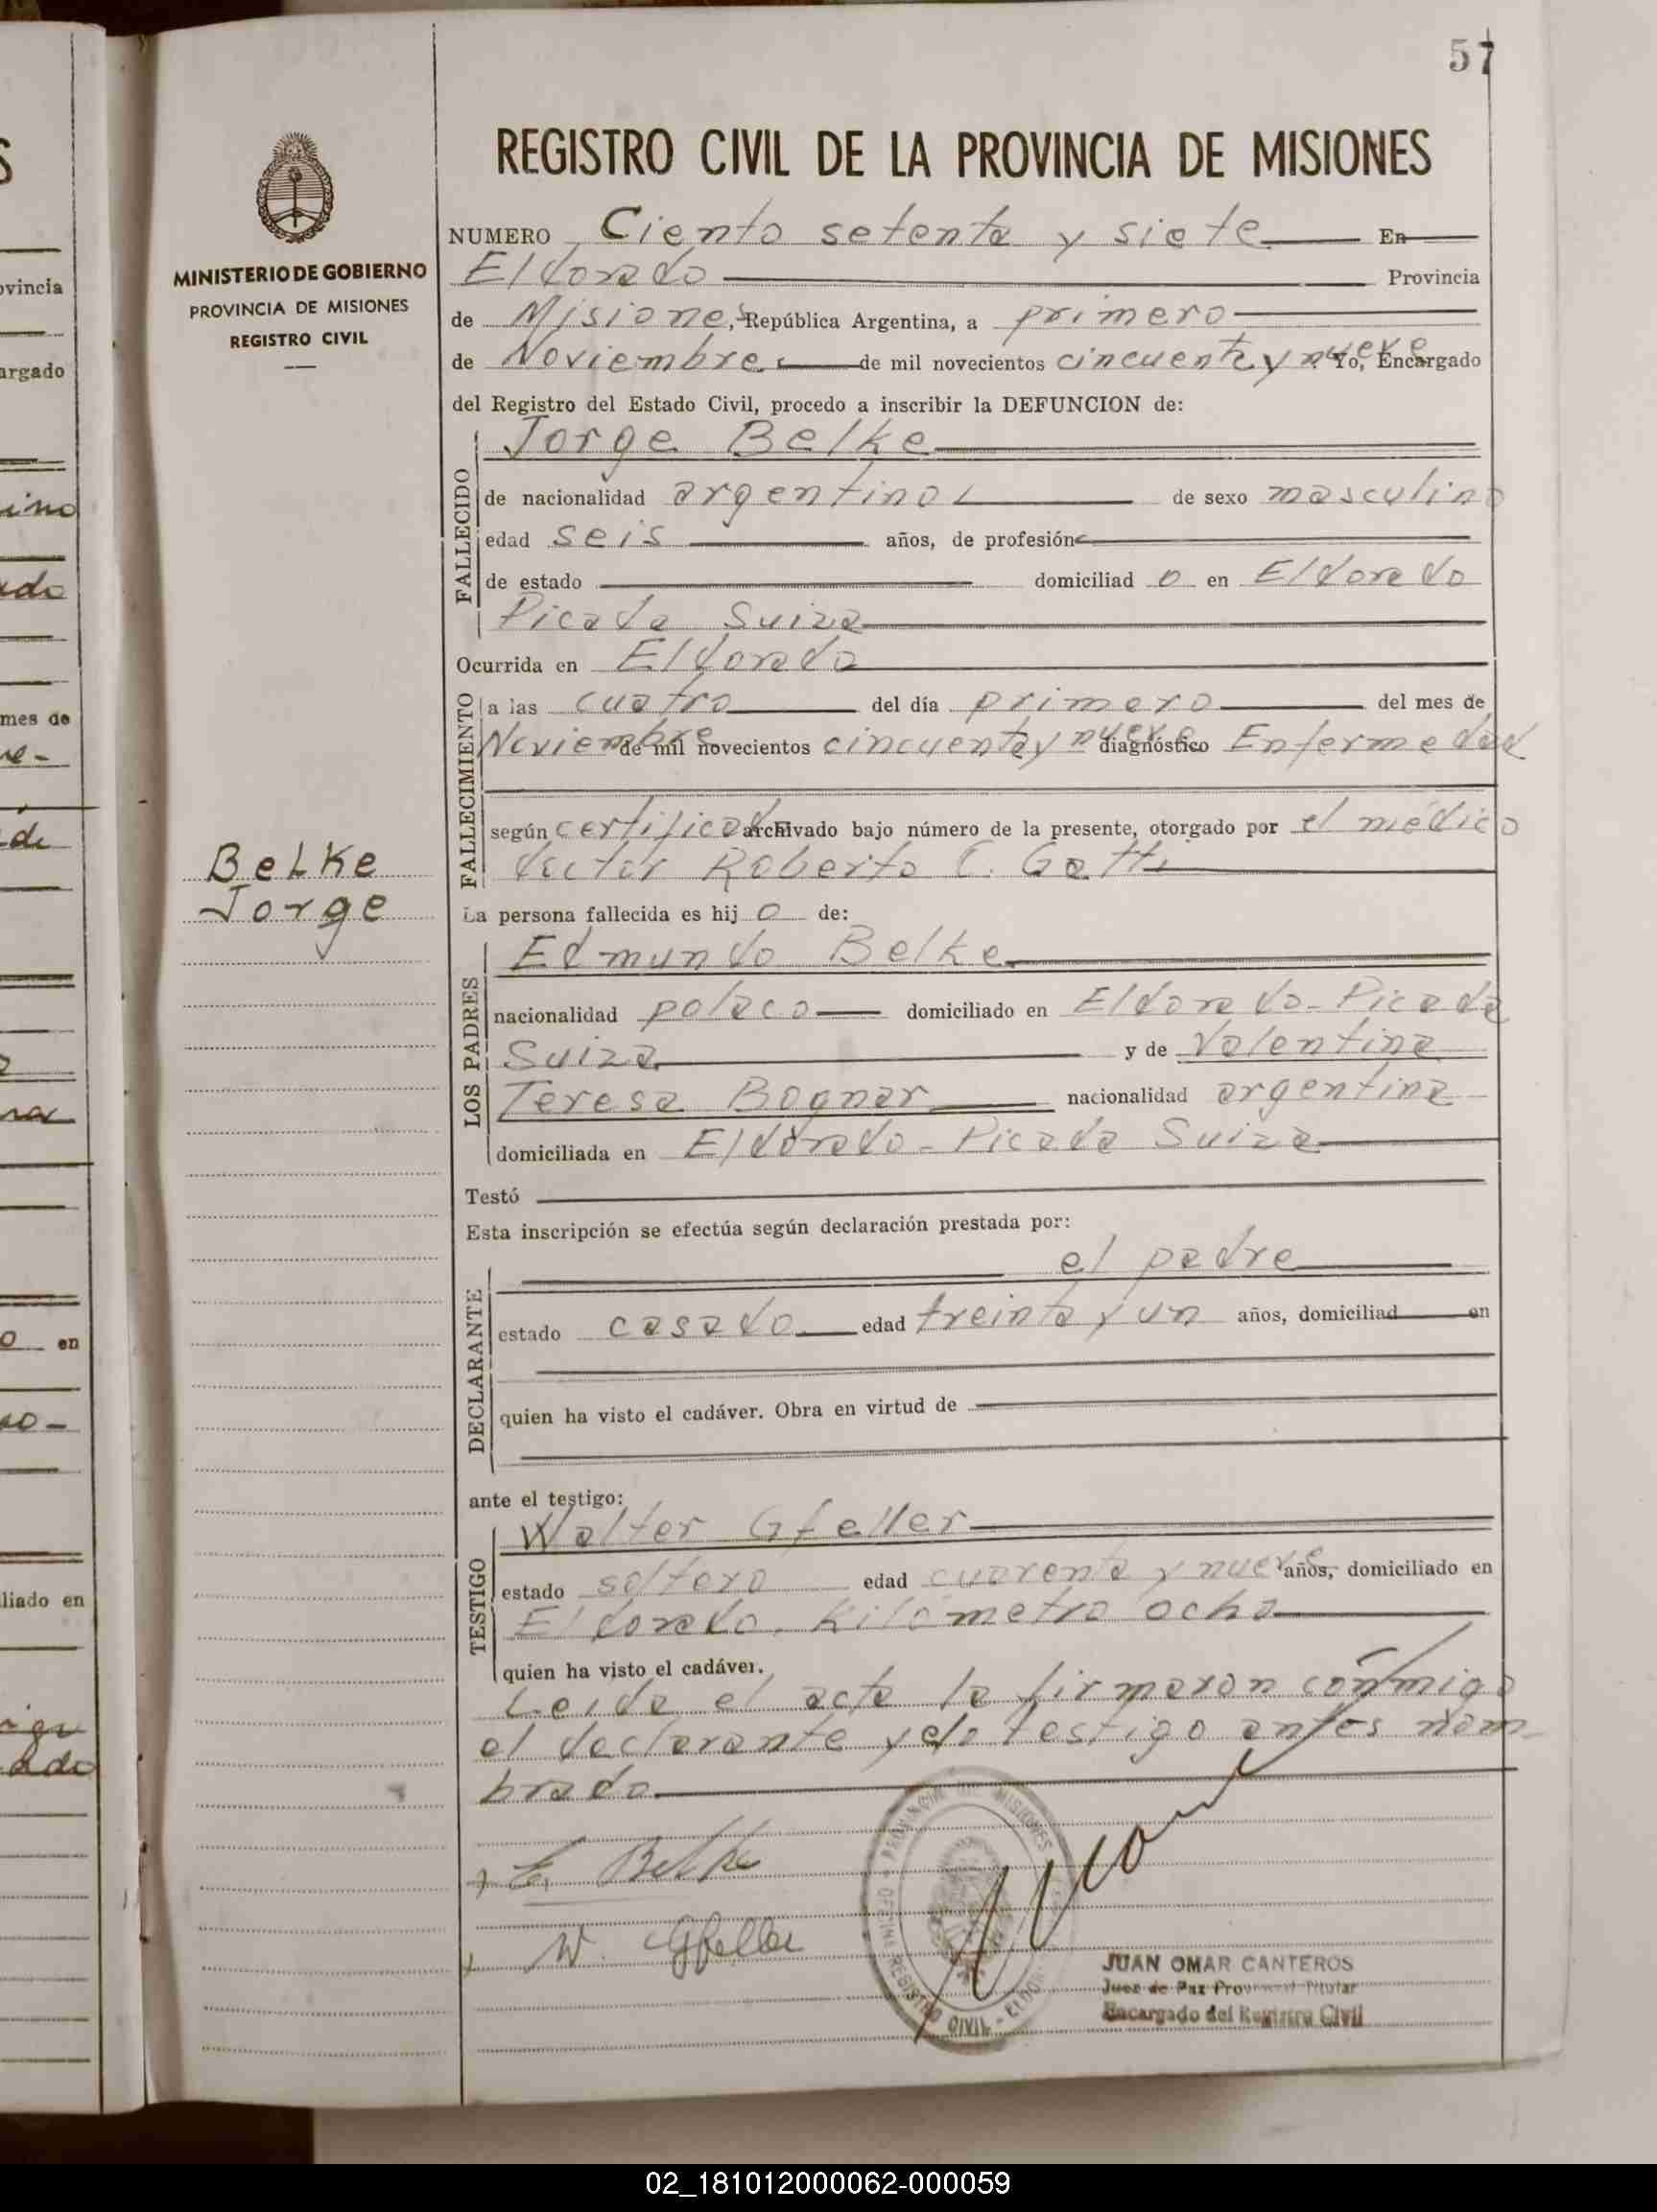 57
REGISTRO CIVIL DE LA PROVINCIA DE MISIONES
MINISTERIO DE GOBIERNO
PROVINCIA DE MISIONES
REGISTRO CIVIL
NUMERO Ciento setenta y siete En
Eldorado Provincia
de Misiones, República Argentina, a primero
de Noviembre de mil novecientos cincuenta y nueve Yo, Encargado
del Registro del Estado Civil, procedo a inscribir la DEFUNCION de:
FALLECIDO
Jorge Belke
de nacionalidad argentino de sexo masculino
edad seis años, de profesión
de estado domiciliad o en Eldorado
Picada Suiza
Ocurrida en Eldorado
FALLECIMIENTO
a las cuatro del día primero del mes de
Noviembre de mil novecientos cincuenta y nueve diagnóstico Enfermedad
según certificado archivado bajo número de la presente, otorgado por el médico
doctor Roberto C. Gatti
Belke
Jorge
La persona fallecida es hij o de:
LOS PADRES
Edmundo Belke
nacionalidad polaco domiciliado en Eldorado-Picada
Suiza y de Valentina
Teresa Bognar nacionalidad argentina
domiciliada en Eldorado-Picada Suiza
Testó
Esta inscripción se efectúa según declaración prestada por:
DECLARANTE
el padre
estado casado edad treinta y un años, domiciliad en
quien ha visto el cadáver. Obra en virtud de
ante el testigo:
TESTIGO
Walter Gfeller
estado soltero edad cuarenta y nueve años, domiciliado en
Eldorado, Kilómetro ocho
quien ha visto el cadáver.
Leida el acta la firmaron conmigo
el declarante y el testigo antes nom-
brado
E. Belke
W. Gfeller
PROVINCIA DE MISIONES
OFICINA REGISTRO CIVIL - ELDORADO
JUAN OMAR CANTEROS
Juez de Paz Provincial Titular
Encargado del Registro Civil
02_181012000062-000059